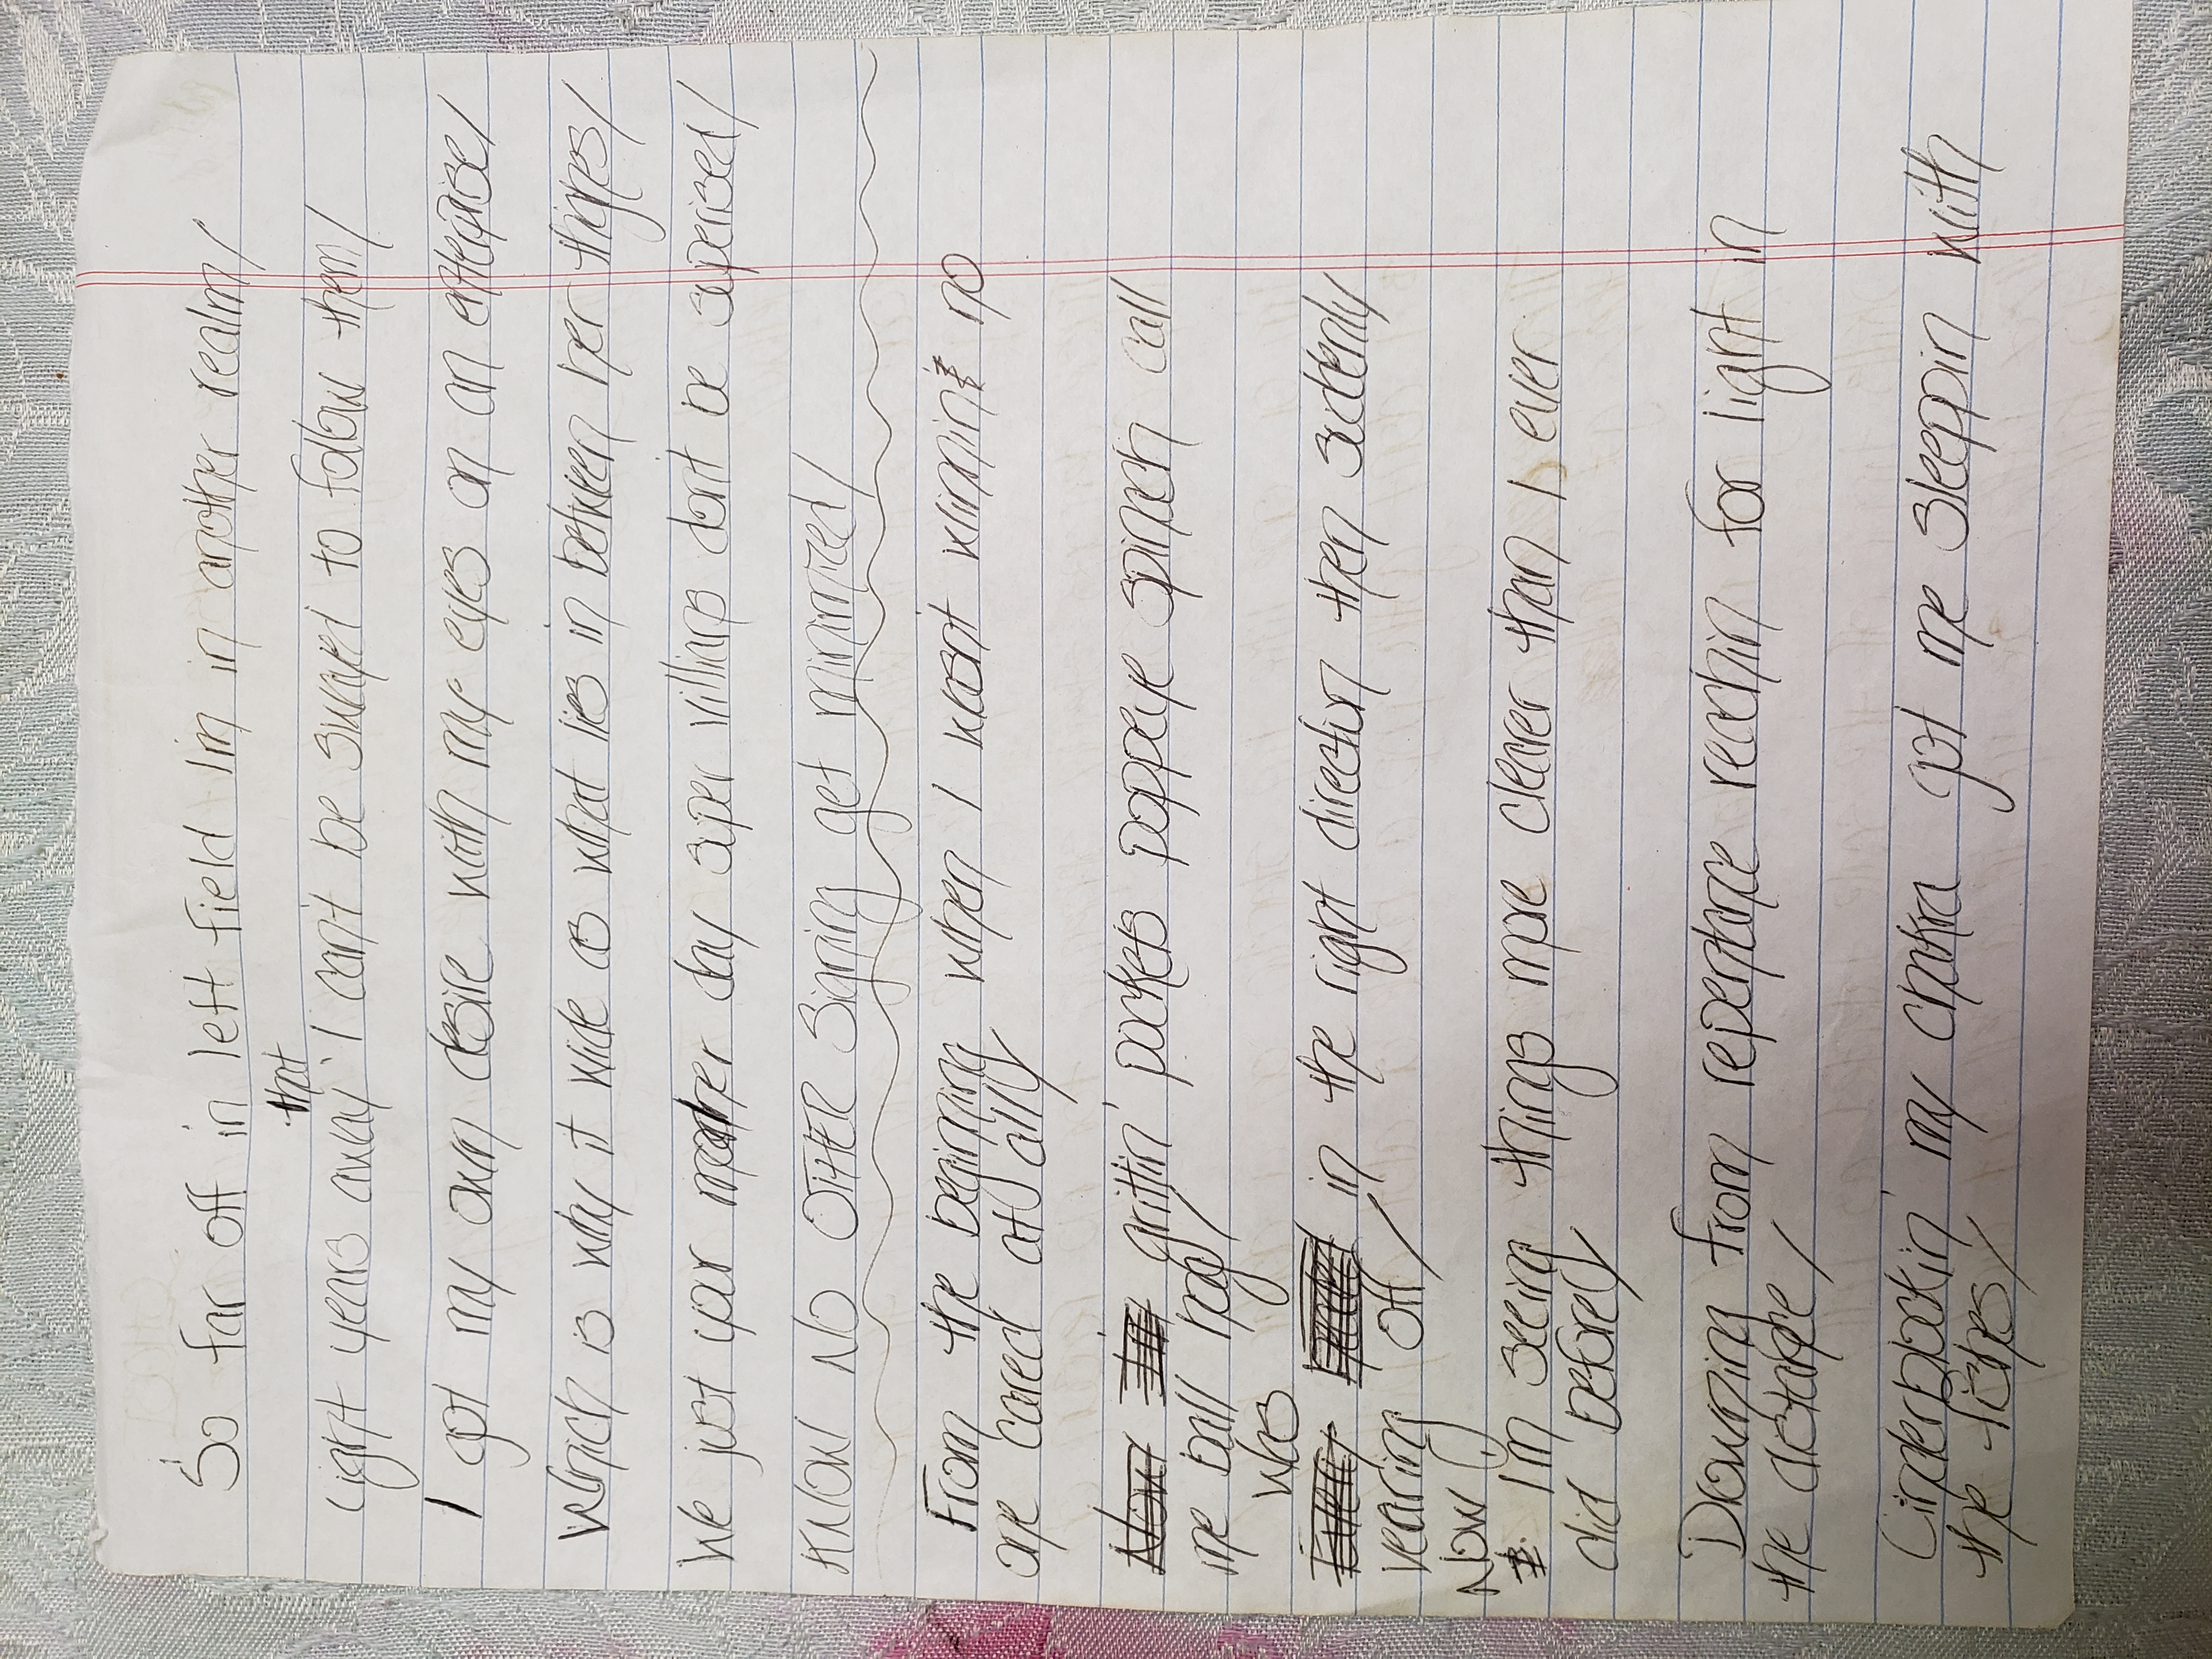 So far off in left field I'm in another realm/
that
Light years away I can't be swayed to follow them/
I got my own desire with my eyes on an enterprise/
Which is why it wide as what lies in between her thighes/
We just your mother day super villians don't be suprised/
KNOW NO OTHER Signing get minimized/
From the beginning when I wasnt winnin no
one cared at all/
grittin' pockets poppeye spinach call
me ball hog/
was
in the right direction then suddenly
veering off/
Now
I'm seeing things more clearer than I ever
did before/
Downing from repentance reachin for light in
the distance/
Cinderblockin' my chakra got me sleepin with
the fishes/